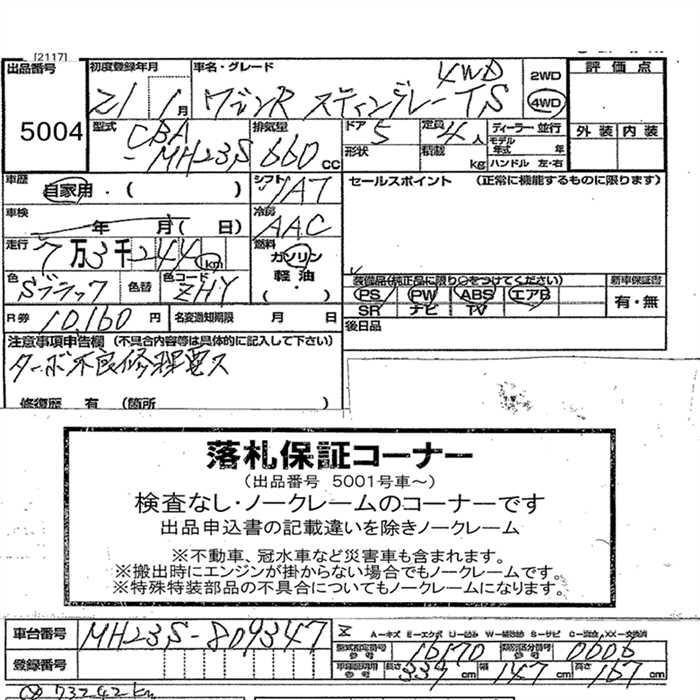 [2117]
出品番号 5004
初度登録年月 21 1月
車名・グレード ワゴンR スティングレーTS 4WD
2WD 4WD
評価点
型式 CBA-MH23S
排気量 660 CC
ドア 5 定員 4人 ディーラー・並行
形状 積載 kg モデル年式 年 ハンドル 左・右
外装 内装
車歴 自家用・( )
シフト IAT
セールスポイント (正常に機能するものに限ります)
車検 年 月( 日)
冷房 AAC
走行 7万3千244km
燃料 ガソリン 軽油 ( ・ )
色 Sブラック 色替 色コード ZHY
装備品(純正品に限り○をつけてください) 新車保証書
PS PW ABS エアB 有・無
SR ナビ TV
R券 10,160円 名変通知期限 月 日
後日品
注意事項申告欄 (不具合内容等は具体的に記入して下さい)
ターボ不良修理要ス
修復歴 有 (箇所 )
落札保証コーナー
(出品番号 5001号車~)
検査なし・ノークレームのコーナーです
出品申込書の記載違いを除きノークレーム
※不動車、冠水車など災害車も含まれます。
※搬出時にエンジンが掛からない場合でもノークレームです。
※特殊特装部品の不具合についてもノークレームになります。
車台番号 MH23S-809347
A-キズ E-エクボ U-凹み W-補修跡 S-サビ C-腐食 XX-交換済
登録番号
型式指定番号 参考 16170 類別区分番号 参考 0006
長さ 339cm 幅 147cm 高さ 167cm
73242km